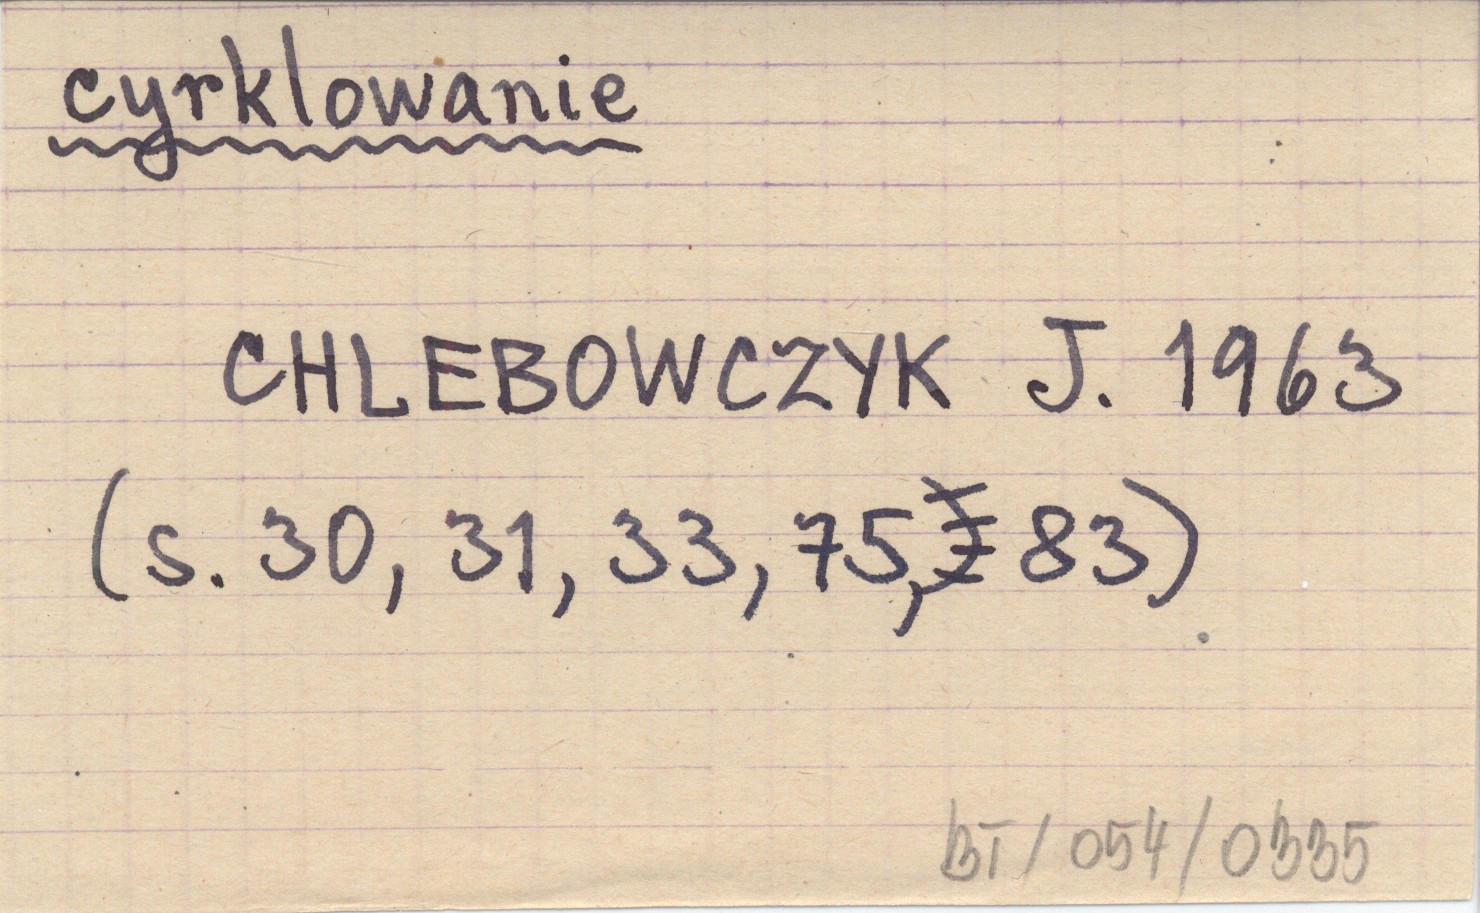 cyrklowanie
CHLEBOWCZYK J. 1963
(s. 30, 31, 33, 75, 83)
BT/054/0335